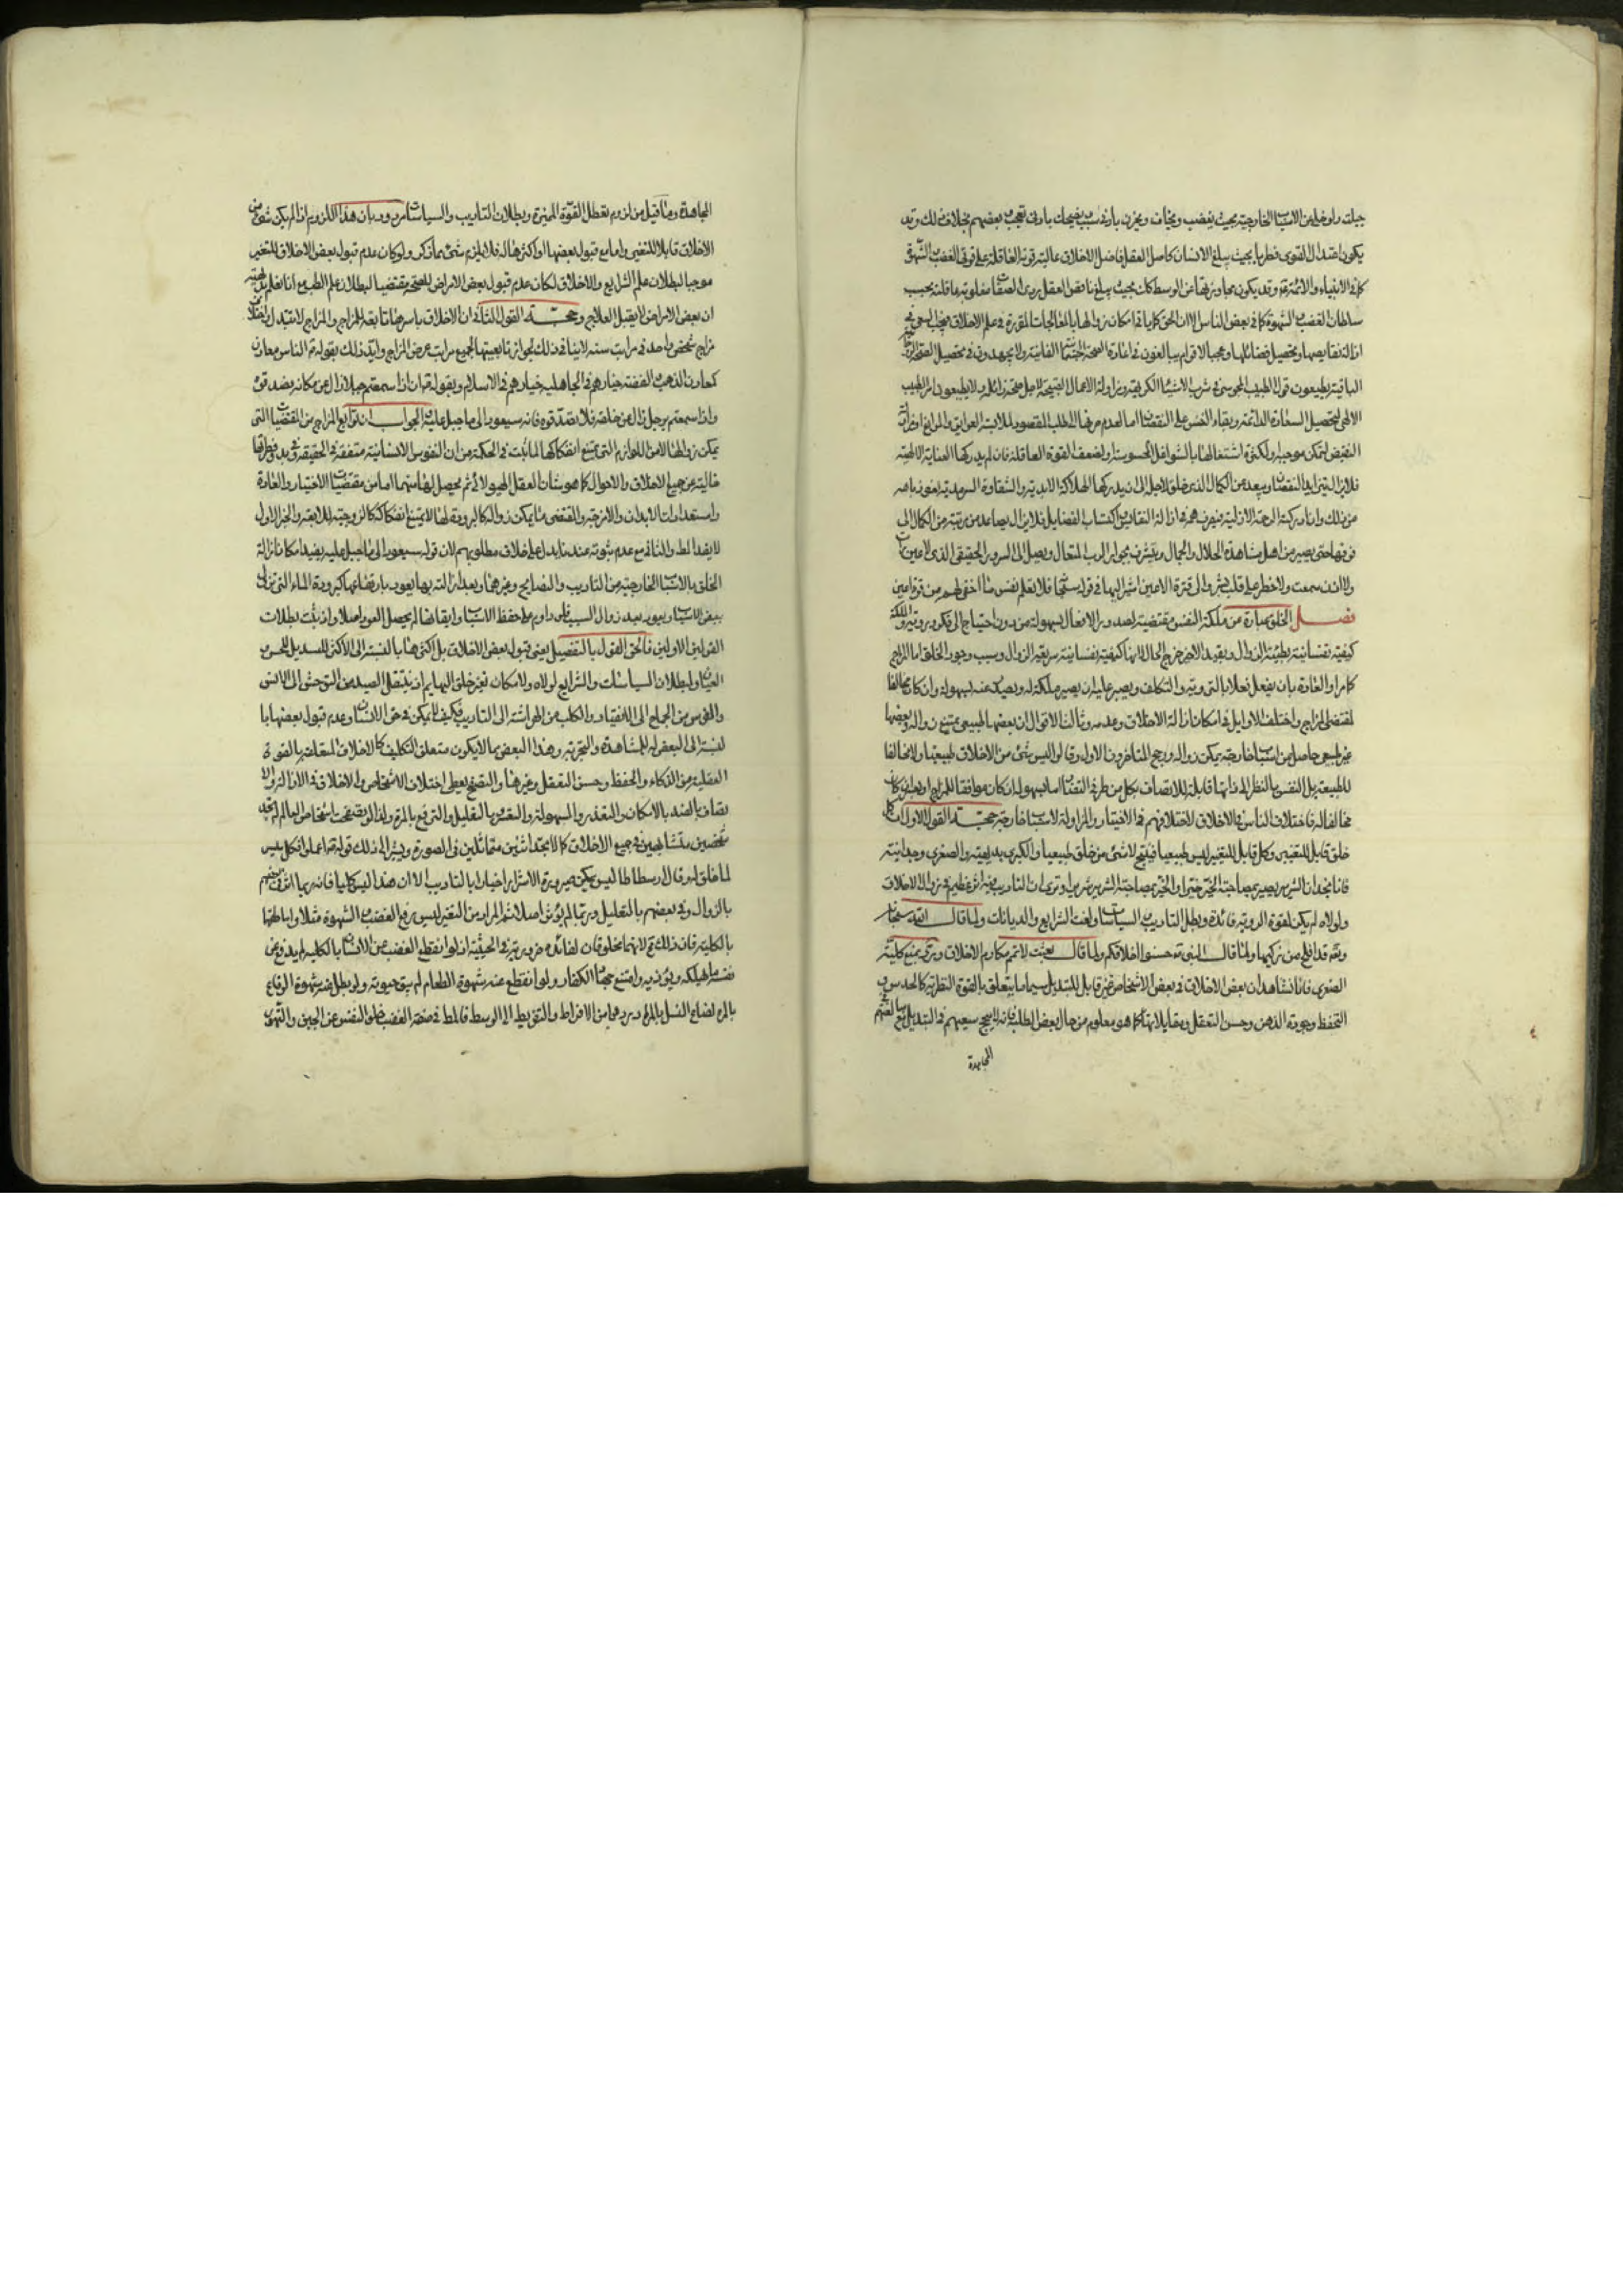 جبلته او خلى من الاسباب الخارجية بحيث يغضب ويخاف ويحزن بادنى سبب ويضحك بادنى تعجب وبعضهم بخلاف ذلك وقد
يكون اعتدال القوى فطريا بحيث يبلغ الانسان كامل العقل فاضل الاخلاق غالبة قوته العاقلة على قوتى الغضب والشهوة
كما فى الانبياء والائمة ع وقد يكون مجاوزتها عن الوسط كذلك بحيث يبلغ ناقص العقل ردى الصفات مغلوبة عاقلته تحت
سلطان الغضب والشهوة كما فى بعض الناس الا ان الحق كما ياتى امكان زوالها بالمعالجات المقررة فى علم الاخلاق فيجب السعى فى
ازالة نقايصها وتحصيل فضائلها وعجبا لاقوام يبالغون فى اعادة الصحة الجسمانية الفانية ولا يجتهدون فى تحصيل الصحة الروحانية
الباقية يطيعون قول الطبيب المجوسى فى شرب الاشياء الكريهة ومزاولة الاعمال القبيحة لاجل صحة زائلة ولا يطيعون امر الطبيب
الالهى لتحصيل السعادة الدائمة وبقاء النفس على النقصان اما لعدم صرفها الى طلب المقصود لملابسة العوايق والموانع او مزاولة
النقيض لتمكن موجبه او لكثرة اشتغالها بالشواغل المحسوسة او لضعف القوة العاقلة فان لم يدركها العناية الالهية
فلا يزال يتزايد النقصان ويبعد عن الكمال الذى خلق لاجله الى ان يدركها الهلاكة الابدية والشقاوة السرمدية نعوذ بالله
من ذلك وان ادركته الرحمة الازلية فيصرف همه فى ازالة النقايص واكتساب الفضايل فلا يزال يتصاعد من مرتبة من الكمال الى
فوقها حتى يصير من اهل مشاهدة الجلال والجمال ويتشرف بجوار الرب المتعال ويصل الى السرور الحقيقى الذى لا عين رات
ولا اذن سمعت ولا خطر على قلب بشر والى قرة الاعين اشير اليها فى قوله سبحانه فلا تعلم نفس ما اخفى لهم من قرة اعين
فصل الخلق عبارة عن ملكة النفس مقتضية لصدور الافعال بسهولة من دون احتياج الى فكر وروية والملكة
كيفية نفسانية بطيئة الزوال وبقيد الاخير خرج الحال لانها كيفية نفسانية سريعة الزوال وسبب وجود الخلق اما المزاج
كما مر او العادة بان يفعل فعلا بالروية والتكلف ويصبر عليه ان يصير ملكة له ويصدر عنه بسهولة وان كان مخالفا
لمقتضى المزاج واختلف الاوايل فى امكان ازالة الاخلاق وعدمه وثالث الاقوال ان بعضها طبيعى يمتنع زواله وبعضها
غير طبيعى حاصل من اسباب خارجة يمكن زواله ورجح المتاخرون الاول وقالوا ليس شئ من الاخلاق طبيعيا ولا مخالفا
للطبيعة بل النفس بالنظر الى ذاتها قابلة للاتصاف بكل من طرفى التضاد اما بسهولة ان كان موافقا للمزاج او بعسر ان كان
مخالفا له فاختلاف الناس فى الاخلاق لاختلافهم فى الاختيار والمزاولة لاسباب خارجة حجة القول الاول ان كل
خلق قابل للتغيير وكل قابل للتغيير ليس طبيعيا فينتج لا شئ من خلق طبيعيا والكبرى بديهية والصغرى وجدانية
فانا نجد ان الشرير يصير بمصاحبة الخير خيرا والخير بمصاحبة الشرير شريرا ونرى ان التاديب فيه اثر عظيم فى زوال الاخلاق
ولولاه لم يكن لقوة الروية فائدة وبطل التاديب والسياسات ولغت الشرايع والديانات ولما قال الله سبحانه
وتعم قد افلح من زكيها ولما قال النبى ص حسنوا اخلاقكم ولما قال بعثت لاتمم مكارم الاخلاق ورد بمنع كلية
الصغرى فانا نشاهد ان بعض الاخلاق فى بعض الاشخاص غير قابل للتبديل سيما ما يتعلق بالقوة النظرية كالحدس و
التحفظ وجودة الذهن وحسن التعقل ومقابلاتها كما هو معلوم من حال بعض الطلبة فانه لا ينجح سعيهم فى التبديل مع مبالغتهم
المجاهدة
المجاهدة وما قيل من لزوم تعطل القوة المميزة وبطلان التاديب والسياسات مردود بان هذا اللازم اذا لم يكن شئ من
الاخلاق قابلا للتغير واما مع قبول بعضها او اكثرها له فلا يلزم شئ مما ذكر ولو كان عدم قبول بعض الاخلاق للتغير
موجبا لبطلان علم الشرايع والاخلاق لكان عدم قبول بعض الامراض للصحة مقتضيا لبطلان علم الطب مع انا نعلم بديهة
ان بعض الامراض لا يقبل العلاج وحجة القول الثانى ان الاخلاق باسرها تابعة للمزاج والمزاج لا يتبدل واختلاف
مزاج شخص واحد فى مراتب سنه لا ينافى ذلك لجواز تابعيتها لجميع مراتب عرض المزاج وايد ذلك بقوله ص الناس معادن
كمعادن الذهب والفضة خيارهم فى الجاهلية خيارهم فى الاسلام وبقوله ص اذا سمعتم جبلا زال عن مكانه فصدقوه
واذا سمعتم برجل زال عن خلقه فلا تصدقوه فانه سيعود الى ما جبل عليه والجواب ان توابع المزاج من المقتضيات التى
يمكن زوالها لا من اللوازم التى يمتنع انفكاكها لما ثبت فى الحكمة من ان النفوس الانسانية متفقة فى الحقيقة وفى بدو فطرتها
خالية عن جميع الاخلاق والاحوال كما هو شان العقل الهيولائى ثم يحصل لها منهما اما من مقتضيات الاختيار والعادة
واستعدادات الابدان والامزجة والمقتضى ما يمكن زواله كالبرودة للماء لا ما يمتنع انفكاكه كالزوجية للاربعة والخبر الاول
لا يفيد المط والثانى مع عدم ثبوته عندنا يدل على خلاف مطلوبهم لان قوله سيعود الى ما جبل عليه يفيد امكان ازالة
الخلق بالاسباب الخارجية من التاديب والنصايح وغيرهما وبعد ازالته بها يعود بارتفاعها كبرودة الماء التى تزول
ببعض الاسباب ويعود بعد زوال السبب فلو داوم على حفظ الاسباب وابقائها لم يحصل العود اصلا واذ ثبت بطلان
القولين الاولين فالحق القول بالتفصيل يعنى قبول بعض الاخلاق بل اكثرها بالنسبة الى الاكثر للتبديل للحس و
العيان ولبطلان السياسات والشرايع لولاه ولامكان تغير خلق البهايم اذ ينتقل الصيد من التوحش الى الانس
والفرس من الجماح الى الانقياد والكلب من الهراشة الى التاديب فكيف لا يمكن فى حق الانسان وعدم قبول بعضها با
لنسبة الى البعض له للمشاهدة والتجربة وهذا البعض مما لا يكون متعلق التكليف كالاخلاق المتعلقة بالقوة
العقلية من الذكاء والحفظ وحسن التعقل وغيرها والتصفح يعطى اختلاف الاشخاص والاخلاق فى الازالة والا
تصاف بالضد بالامكان والتعذر والسهولة والتعسر والتقليل والرفع بالمرة ولذا لو تصفحت اشخاص العالم لم تجد
شخصين متشابهين فى جميع الاخلاق كما لا تجد اثنين متماثلين فى الصورة ويشير الى ذلك قوله ص اعملوا فكل ميسر
لما خلق له وقال ارسطاطاليس يمكن صيرورة الاشرار اخيارا بالتاديب الا ان هذا ليس كليا فانه ربما اثر فى بعضهم
بالزوال وفى بعضهم بالتقليل وربما لم يؤثر اصلا ثم المراد من التغيير ليس رفع الغضب والشهوة مثلا واماطتها
بالكلية فان ذلك مح لانهما مخلوقان لفائدة ضرورية فى الجبلة اذ لو انقطع الغضب عن الانسان بالكلية لم يدفع عن
نفسه ما يهلكه ويؤذيه وامتنع جهاد الكفار ولو انقطع عنه شهوة الطعام لم يبق حيوته ولو بطل عنه شهوة الوقاع
بالمرة لضاع النسل بالمراد ردهما من الافراط والتفريط الى الوسط فالمط فى صفة الغضب خلو النفس عن الجبن والتهور